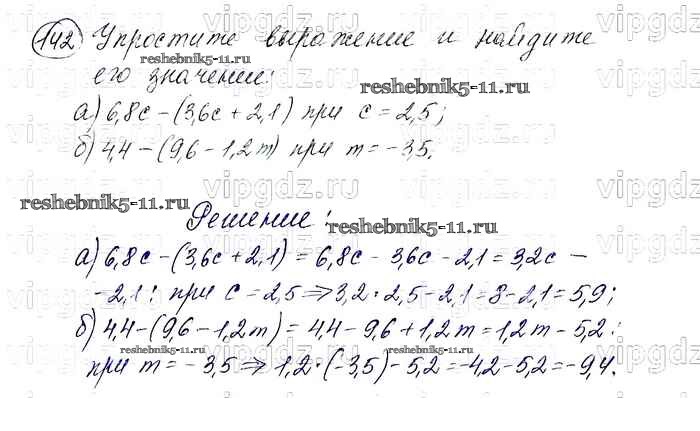 142 Упростите выражение и найдите
его значение:
а) 6,8c - (3,6c + 2,1) при c = 2,5;
б) 4,4 - (9,6 - 1,2m) при m = -3,5.
Решение:
а) 6,8c - (3,6c + 2,1) = 6,8c - 3,6c - 2,1 = 3,2c -
- 2,1; при c = 2,5 ⇒ 3,2 · 2,5 - 2,1 = 8 - 2,1 = 5,9;
б) 4,4 - (9,6 - 1,2m) = 4,4 - 9,6 + 1,2m = 1,2m - 5,2;
при m = -3,5 ⇒ 1,2 · (-3,5) - 5,2 = -4,2 - 5,2 = -9,4.
reshebnik5-11.ru
reshebnik5-11.ru
reshebnik5-11.ru
reshebnik5-11.ru
reshebnik5-11.ru
reshebnik5-11.ru
vipgdz.ru